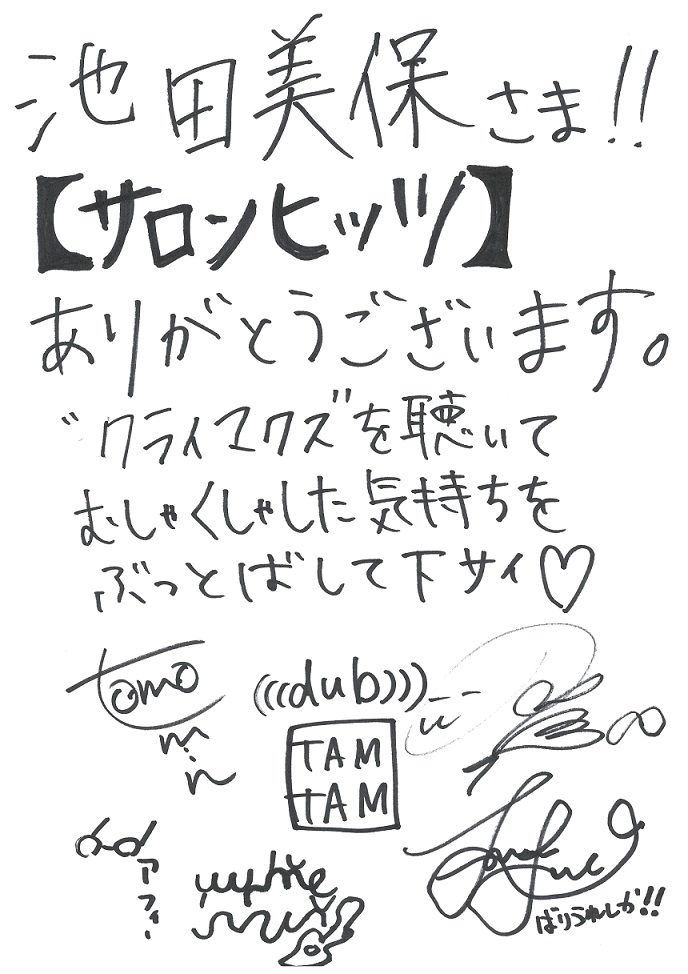 池田美保さま!!
【サロンヒッツ】
ありがとうございます。
"クライマクズ"を聴いて
むしゃくしゃした気持ちを
ぶっとばして下サイ♡
tomo
(((dub)))
TAM
TAM
アフィー
ばりうれしか!!